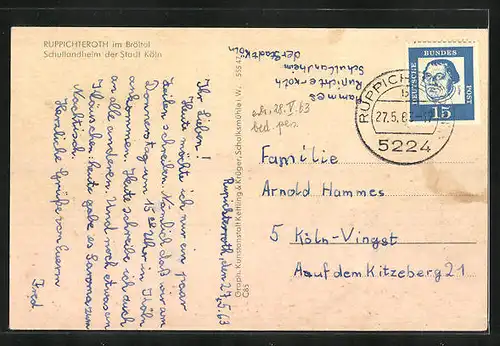 RUPPICHTEROTH im Bröltal
Schullandheim der Stadt Köln
Ruppichteroth den 27.5.63
Ihr Lieben!
Heute möchte ich nur ein paar
Zeilen schreiben. Nämlich daß wir am
Donnerstag um 15 Uhr in Köln
ankommen. Heute schreibe ich auch
an alle anderen. Und noch etwas an
Häuschen: heute gabe es zum
Nachtisch.
Herzliche Grüße von Euerm
Fred
Graph. Kunstanstalt Kehling & Krüger, Schalksmühle i. W.
C85
Hammes
Ruppichteroth
Schullandheim
der Stadt Köln
28.V.63
DEUTSCHE BUNDES POST
15
RUPPICH
27.5.63
5224
Familie
Arnold Hammes
5 Köln-Vingst
Auf dem Kitzeberg 21